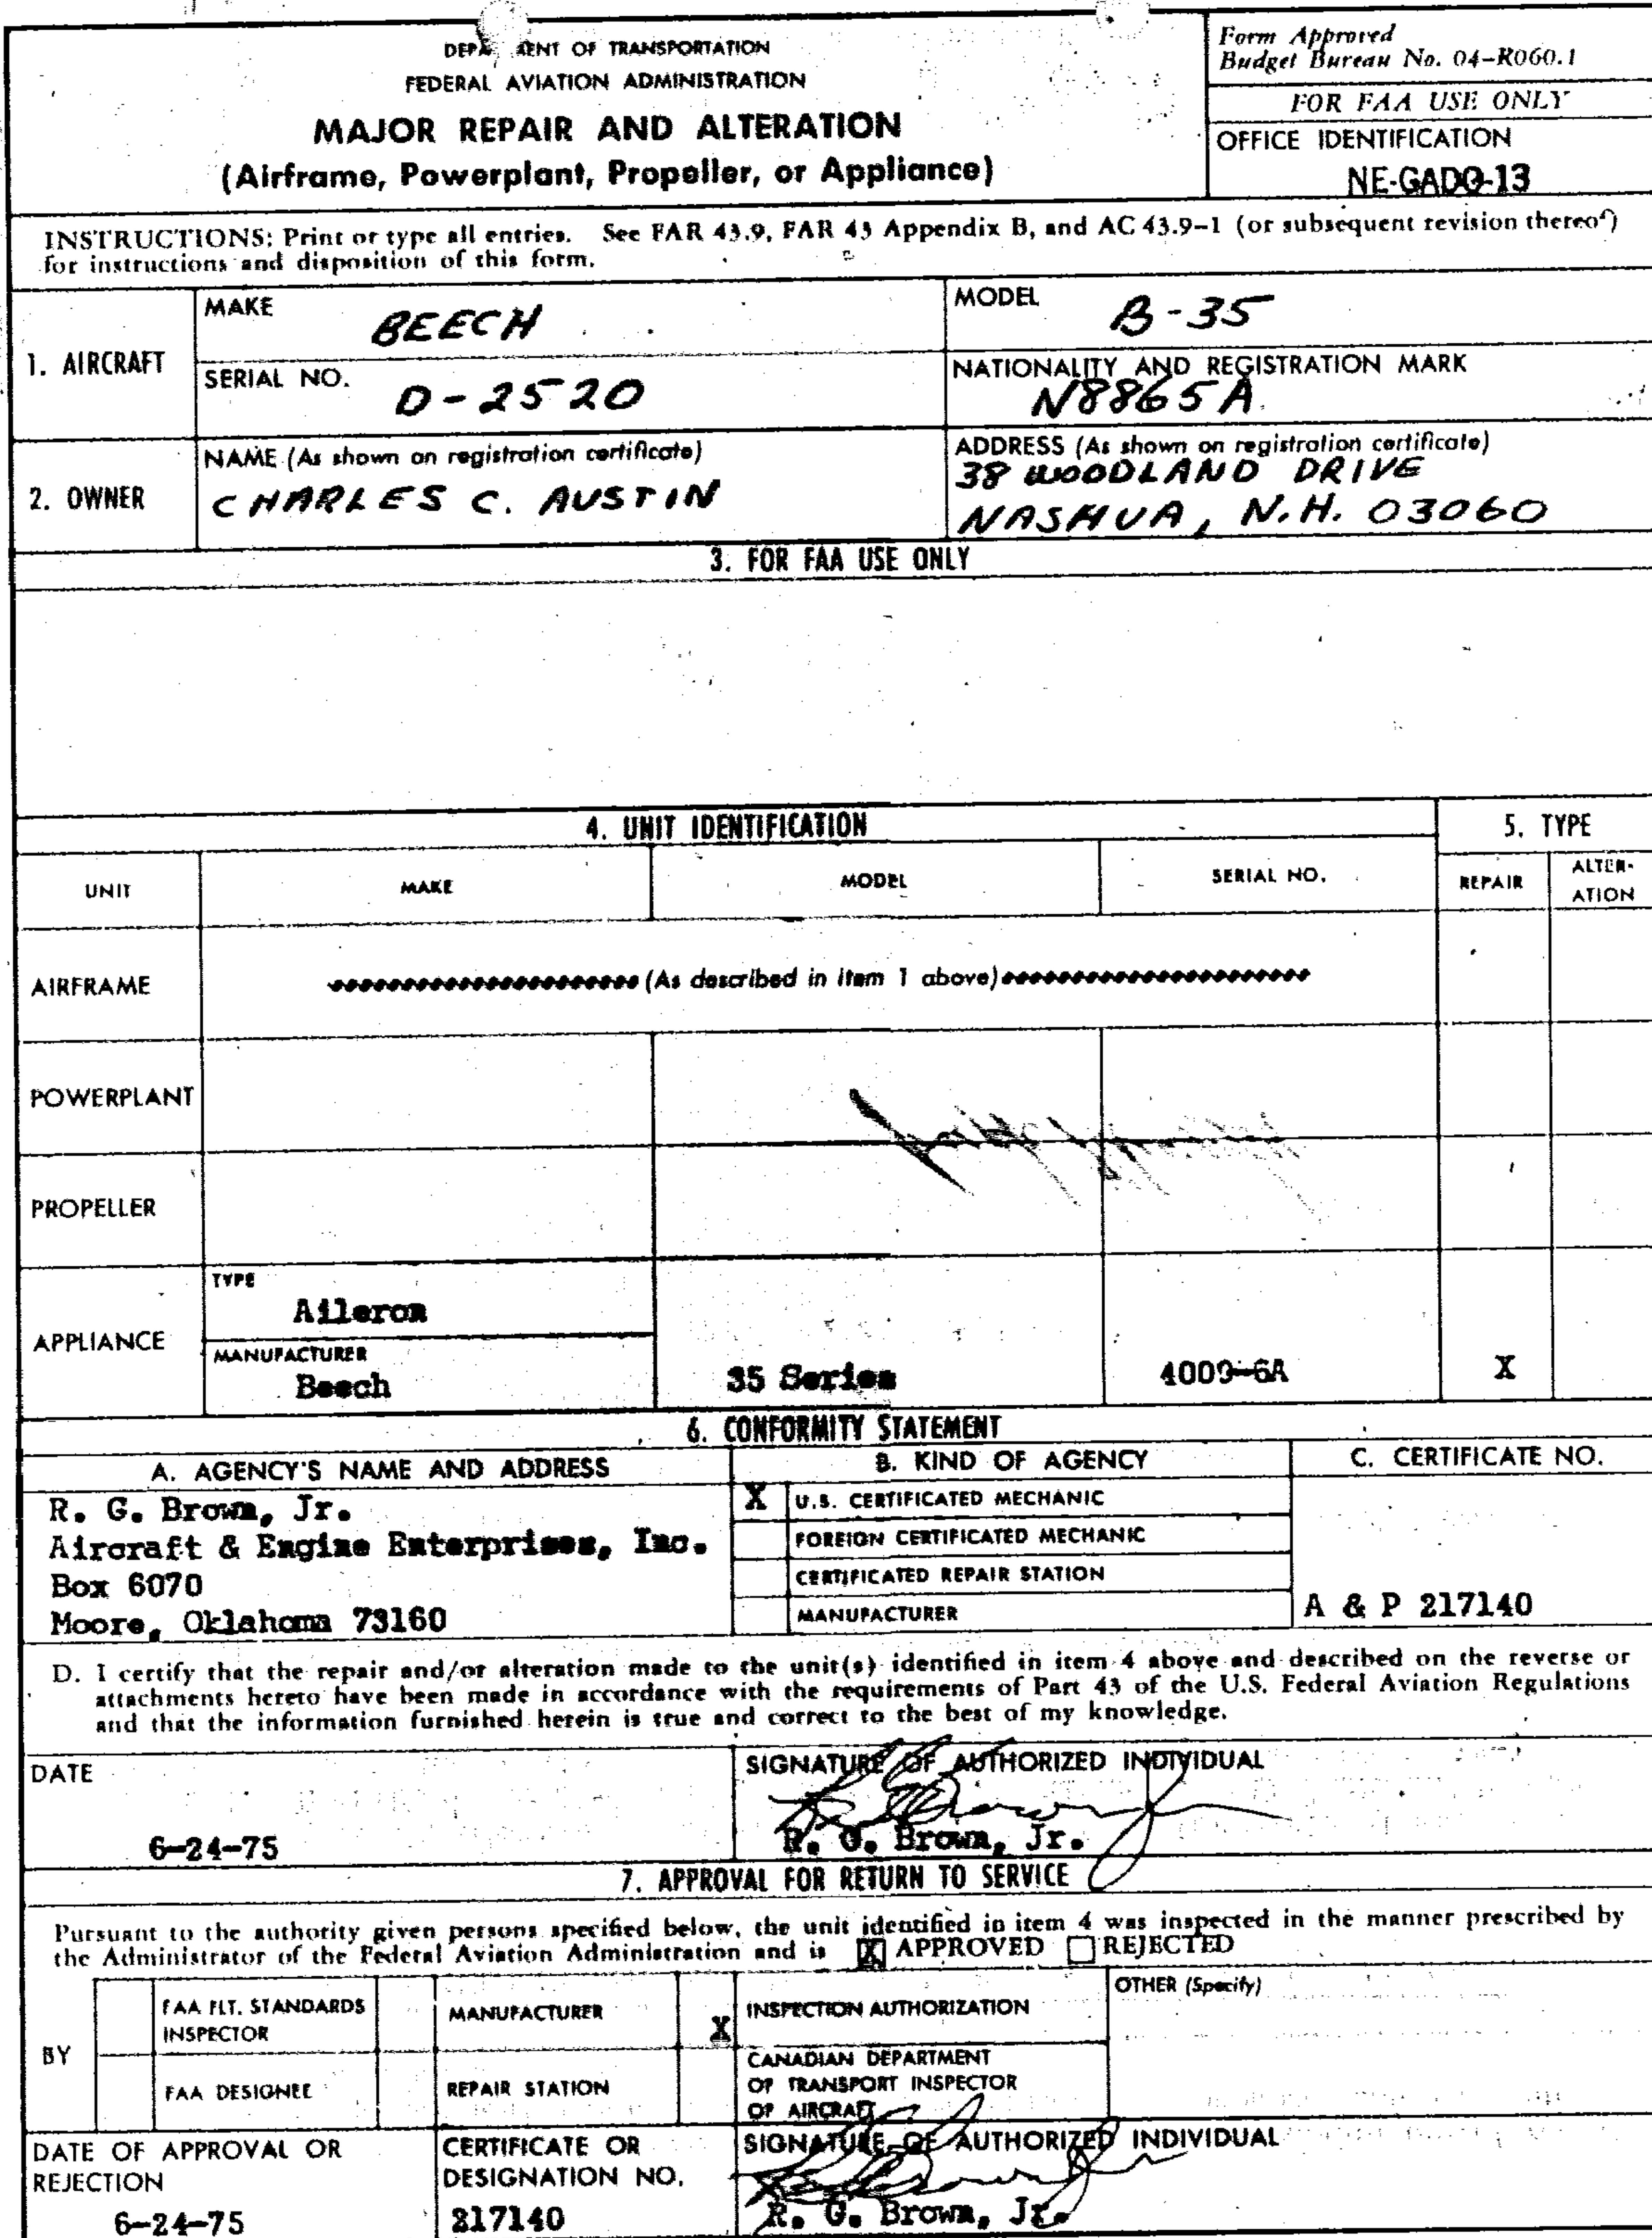 DEPA MENT OF TRANSPORTATION
FEDERAL AVIATION ADMINISTRATION
MAJOR REPAIR AND ALTERATION
(Airframe, Powerplant, Propeller, or Appliance)
Form Approved
Budget Bureau No. 04-R060.1
FOR FAA USE ONLY
OFFICE IDENTIFICATION
NE-GADO-13
INSTRUCTIONS: Print or type all entries. See FAR 43.9, FAR 43 Appendix B, and AC 43.9-1 (or subsequent revision thereof)
for instructions and disposition of this form.
1. AIRCRAFT
MAKE
BEECH
MODEL
B-35
SERIAL NO.
D-2520
NATIONALITY AND REGISTRATION MARK
N8865A
2. OWNER
NAME (As shown on registration certificate)
CHARLES C. AUSTIN
ADDRESS (As shown on registration certificate)
38 WOODLAND DRIVE
NASHUA, N.H. 03060
3. FOR FAA USE ONLY
4. UNIT IDENTIFICATION
5. TYPE
UNIT
MAKE
MODEL
SERIAL NO.
REPAIR
ALTER-
ATION
AIRFRAME
(As described in item 1 above)
POWERPLANT
PROPELLER
APPLIANCE
TYPE
Aileron
MANUFACTURER
Beech
35 Series
4009-6A
X
6. CONFORMITY STATEMENT
A. AGENCY'S NAME AND ADDRESS
B. KIND OF AGENCY
C. CERTIFICATE NO.
R. G. Brown, Jr.
Aircraft & Engine Enterprises, Inc.
Box 6070
Moore, Oklahoma 73160
X U.S. CERTIFICATED MECHANIC
FOREIGN CERTIFICATED MECHANIC
CERTIFICATED REPAIR STATION
MANUFACTURER
A & P 217140
D. I certify that the repair and/or alteration made to the unit(s) identified in item 4 above and described on the reverse or
attachments hereto have been made in accordance with the requirements of Part 43 of the U.S. Federal Aviation Regulations
and that the information furnished herein is true and correct to the best of my knowledge.
DATE
6-24-75
SIGNATURE OF AUTHORIZED INDIVIDUAL
R. G. Brown, Jr.
7. APPROVAL FOR RETURN TO SERVICE
Pursuant to the authority given persons specified below, the unit identified in item 4 was inspected in the manner prescribed by
the Administrator of the Federal Aviation Administration and is X APPROVED REJECTED
BY
FAA FLT. STANDARDS
INSPECTOR
MANUFACTURER
X
INSPECTION AUTHORIZATION
OTHER (Specify)
FAA DESIGNEE
REPAIR STATION
CANADIAN DEPARTMENT
OF TRANSPORT INSPECTOR
OF AIRCRAFT
DATE OF APPROVAL OR
REJECTION
6-24-75
CERTIFICATE OR
DESIGNATION NO.
217140
SIGNATURE OF AUTHORIZED INDIVIDUAL
R. G. Brown, Jr.